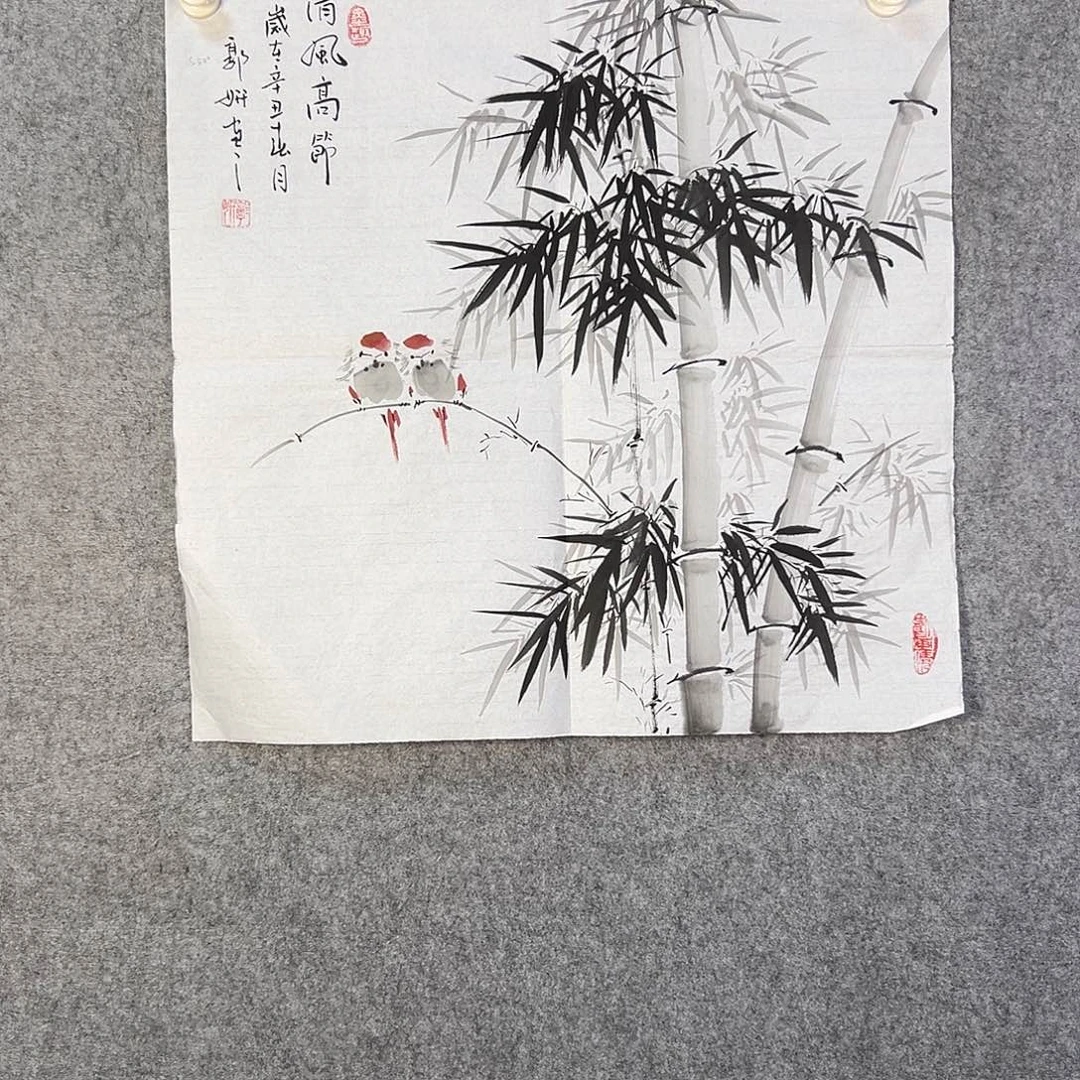 清風高節
歲在辛丑春月
郭妍畫之